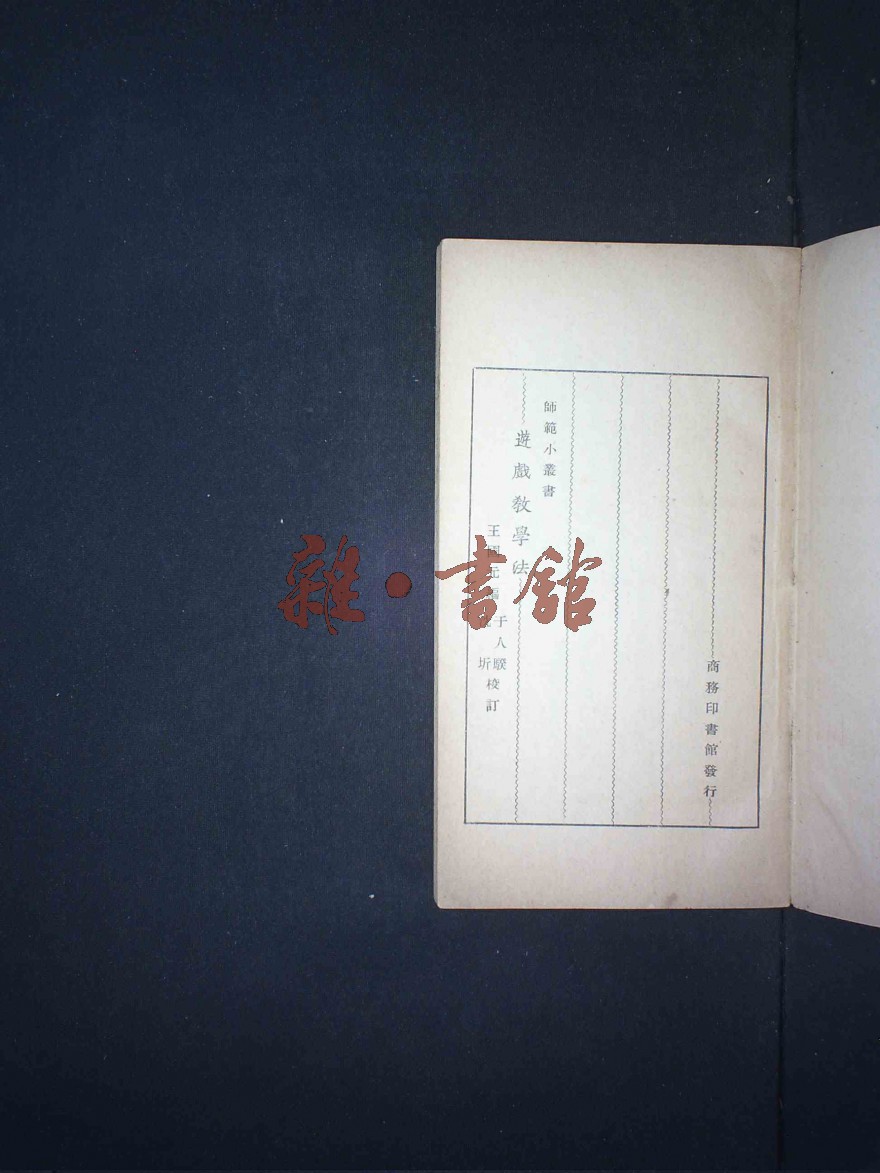 師範小叢書
遊戲教學法
王國元編
于人騤
圻
校訂
商務印書館發行
雜·書館